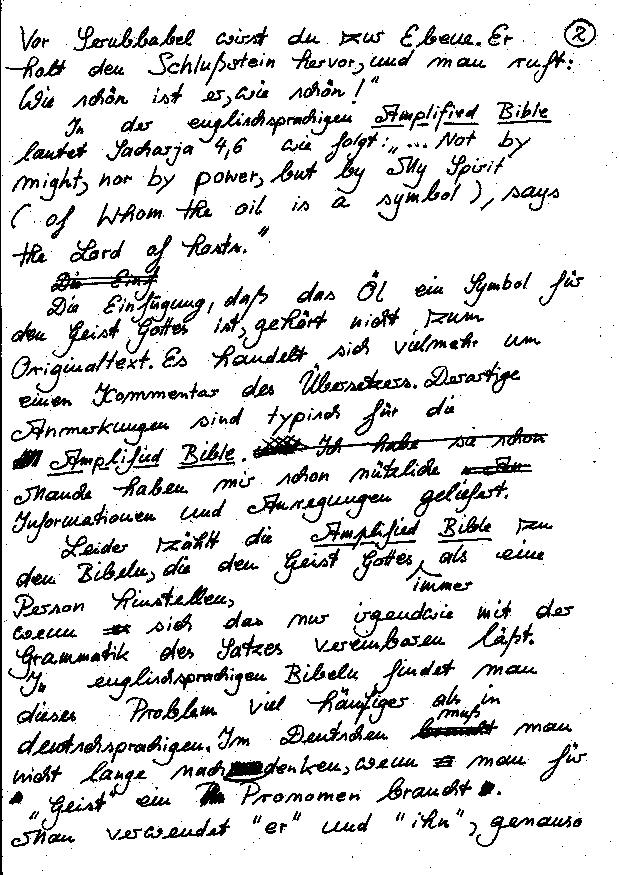 Vor Serubbabel wirst du zur Ebene. Er ②
holt den Schlußstein hervor, und man ruft:
Wie schön ist er, wie schön!"
In der englischsprachigen Amplified Bible
lautet Sacharja 4,6 wie folgt: „... Not by
might, nor by power, but by My Spirit
(of Whom the oil is a symbol), says
the Lord of hosts."
Die Einf
Die Einfügung, daß das Öl ein Symbol für
den Geist Gottes ist, gehört nicht zum
Originaltext. Es handelt sich vielmehr um
einen Kommentar des Übersetzers. Derartige
Anmerkungen sind typisch für die
Amplified Bible. Ich habe sie schon
Manche haben mir schon nützliche
Informationen und Anregungen geliefert.
Leider zählt die Amplified Bible zu
den Bibeln, die den Geist Gottes, als eine
immer
Person hinstellen,
wenn sich das nur irgendwie mit der
Grammatik des Satzes vereinbaren läßt.
In englischsprachigen Bibeln findet man
dieses Problem viel häufiger als in
muß
deutschsprachigen. Im Deutschen braucht man
nicht lange nachdenken, wenn man für
„Geist" ein Pronomen braucht.
Man verwendet "er" und "ihn", genauso